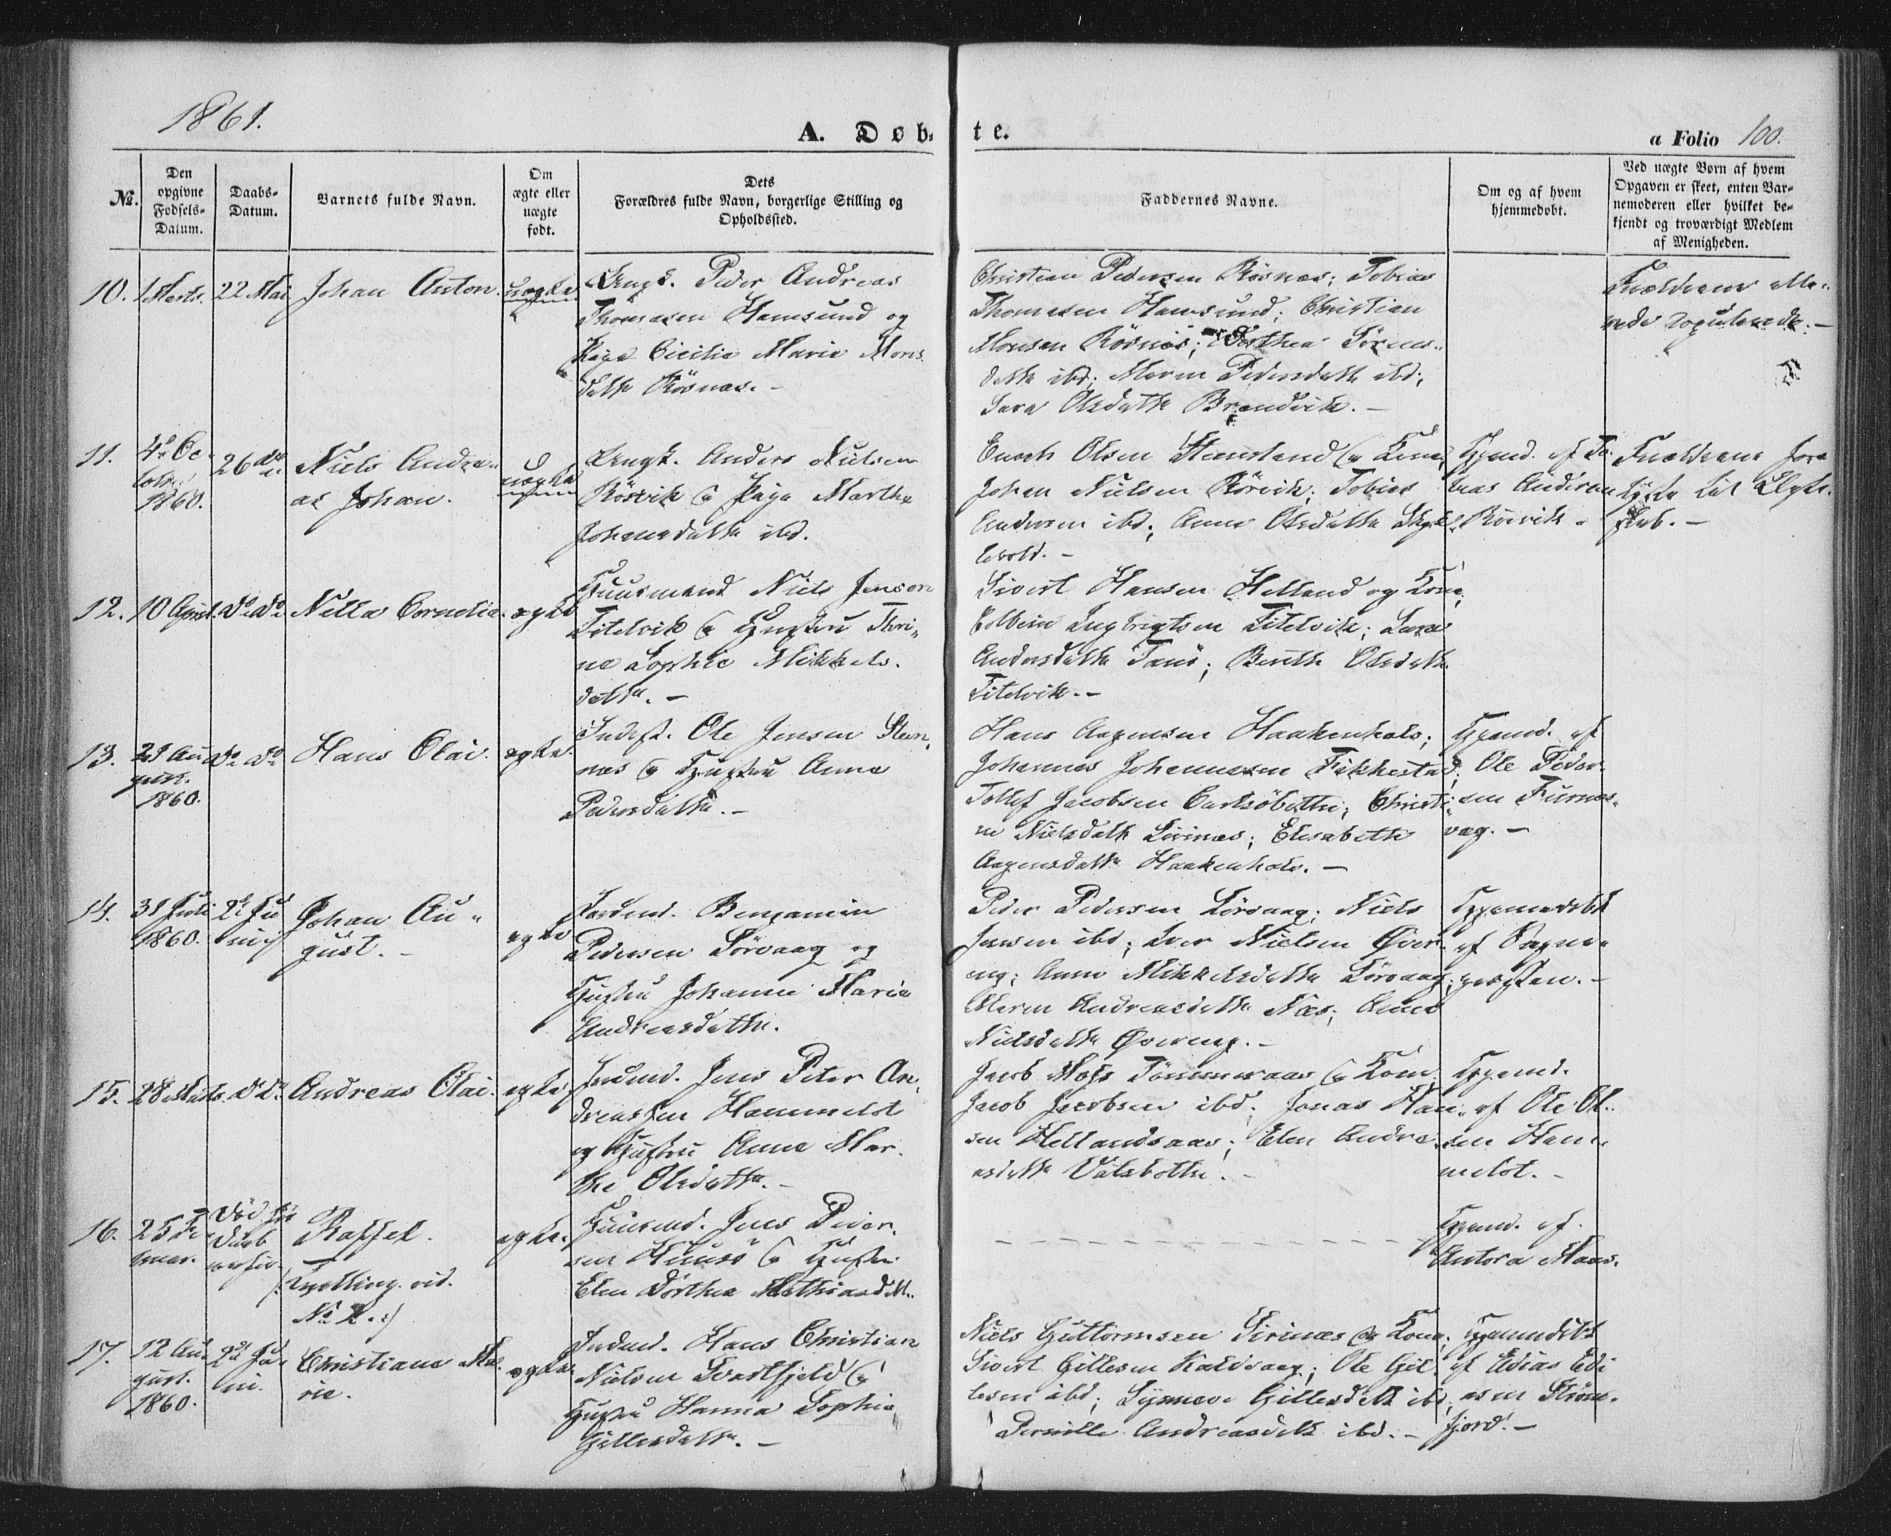 1861.
A. Døb-
te.
a Folio 100.
No.
Den opgivne Fødsels-Datum.
Daabs-Datum.
Barnets fulde Navn.
Om ægte eller uægte født.
Dets Forældres fulde Navn, borgerlige Stilling og Opholdssted.
Faddernes Navne.
Om og af hvem hjemmedøbt.
Ved uægte Børn af hvem Opgaven er skeet, enten Barnemoderen eller hvilket bekjendt og troværdigt Medlem af Menigheden.
10.
1 Marts.
22 Mai
Johan Anton.
uægte
Ungk. Peder Andreas
Thomasen Hamsund og
Pige Cicilie Marie Mons
datte Rösnæs. -
Christian Pedersen Rösnæs; Tobias
Thomasen Hamsund; Christian
Monsen Rösnæs; Dorthea Sörens
datte ibd; Maren Pedersdatte ibd;
Sara Olsdatte Brendvik. -
Forældrene
11.
4de Oc-
tobr.
1860.
26 do
Niels Andre-
as Johan.
uægte
Ungk. Anders Nielsen
Rörvik og Pige Marthe
Johansdatte ibd.
Enoch Olsen og Kone;
Johan Nielsen Rörvik; Tobias
Andersen ibd; Anne Olsdatte
Hjemd. af To-
bias Andersen
Rörvik -
Forældrene
12.
10 April.
do do
Nella Cornelia.
ægte
Huusmand Niels Jenson
Titelvik og Hustru
ne Sophie Mikkels-
datte. -
Sivert Hansen Helland og Kone;
Ingbrigtsen Titelvik; Sara
Andersdatte Tanö; Berith Olsdatte
Titelvik. -
13.
21 Au-
gust.
1860.
do do
Hans Olai.
ægte.
Inderst. Ole Jensen Steen-
næs og Hustru Anne
Pedersdatte. -
Hans Aagensen Haakenhals;
Johannes Johannesen Fikkestad;
Jacobsen Christi-
ne Nielsdatte; Elisabeth
Aagensdatte Haakenhals. -
Hjemd. af
Ole Peder-
sen Furnes-
vaag. -
14.
31 Juli
1860.
2de Ju-
ni
Johan Au-
gust. -
ægte
Benjamin
Pedersen Sörvaag og
Hustru Johanne Maria
Andreasdatte.
Peder Pedersen Sörvaag; Niels
Jensen ibd; Iver Nielsen Över-
eng; Anne Mikkelsdatte Sörvaag;
Maren Andreasdatte Næs; Anne
Nielsdatte Övereng. -
Hjemmedöbt
af Sogne-
præsten. -
15.
28 Marts.
do do.
Andreas Olai.
ægte
Jens Peter An-
dreassen Hammelot
og Hustru Anne Mar-
the Olsdatte. -
Jacob Tömmeraas og Kone
Jacob Jacobsen ibd; Jonas Han-
sen Hellandsaas; Elen Andre-
asdatte Valsbotn. -
Hjemd.
af Ole Ol-
sen Ham-
melot. -
16.
25 Fe-
bruar.
Död för
Daab
Raffel.
(Tvilling vid.
No 2.)
ægte.
Huusmd. Jens Peder-
sen og Hustru
Elen Dorthea Mathiasdatt.
Hjemd. af
Antora Maas.
17.
12 Au-
gust.
1860.
2de Ju-
ni.
Christiane Ma-
rie.
ægte.
Hans Christian
Nielsen Svartfjeld og
Hustru Hanna Sophie
Gillesdatte. -
Niels Guttormsen Sirinæs og Kone.
Sivert Gillesen Kaldvaag; Ole Gil-
lesen ibd; Synneve Gillesdatt ibd;
Pernille Andreasdatt ibd. -
Hjemmedöbt
af Edias Edi-
asen Ström-
fjord. -